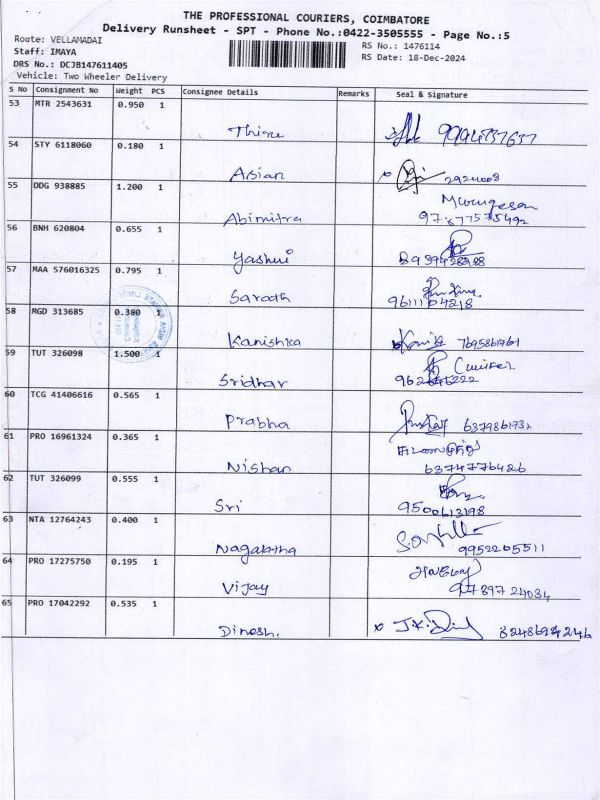 THE PROFESSIONAL COURIERS, COIMBATORE
Delivery Runsheet - SPT - Phone No.:0422-3505555 - Page No.:5
Route: VELLAMADAI
RS No.: 1476114
Staff: IMAYA
RS Date: 18-Dec-2024
DRS No.: DCJB147611405
Vehicle: Two Wheeler Delivery
S No Consignment No Weight PCS Consignee Details Remarks Seal & Signature
53 MTR 2543631 0.950 1
54 STY 6118060 0.180 1
Asian
55 DDG 938885 1.200 1
Murugesan
Abimitra
56 BNH 620804 0.655 1
Yashvi
57 MAA 576016325 0.795 1
Sarath
9611104218
58 MGD 313685 0.380 1
Kanishka
59 TUT 326098 1.500 1
Sridhar
60 TCG 41406616 0.565 1
Prabha 6379861732
61 PRO 16961324 0.365 1
Nishan 6374776426
62 TUT 326099 0.555 1
Sri 9500613198
63 NTA 12764243 0.400 1
9952205511
64 PRO 17275750 0.195 1
Vijay
65 PRO 17042292 0.535 1
Dinesh.